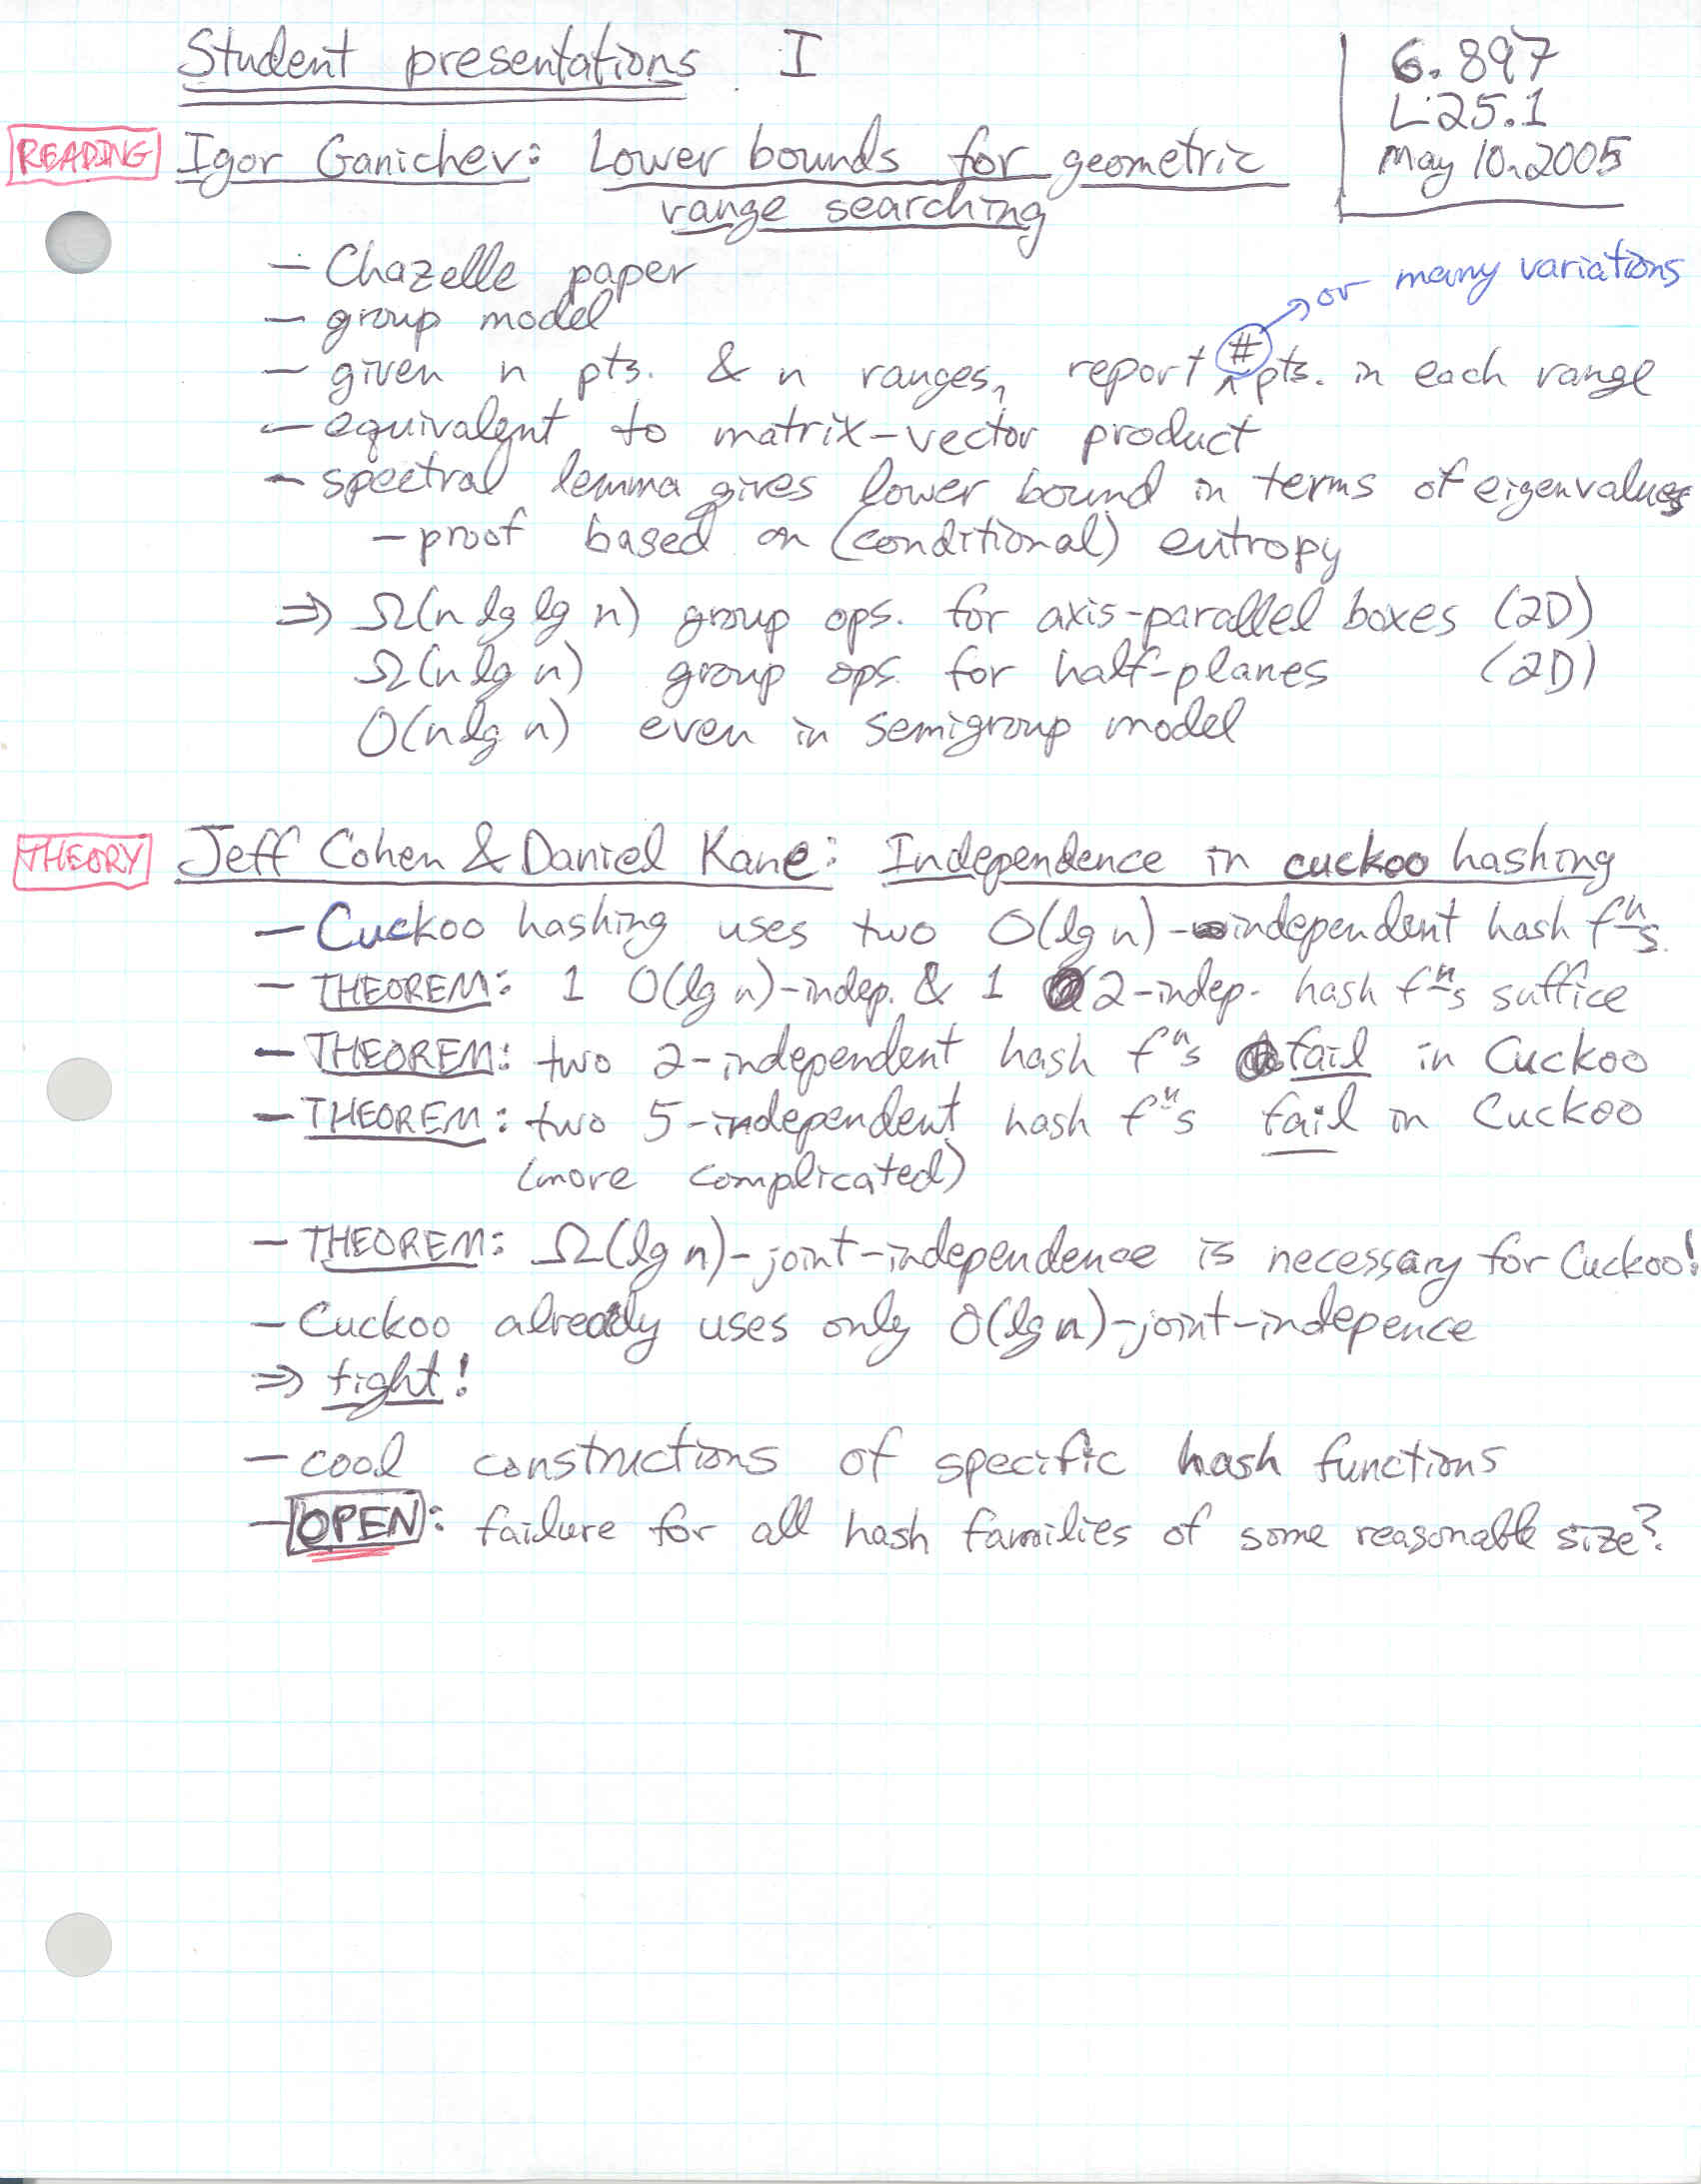 Student presentations I
6.897
L25.1
May 10, 2005
READING Igor Ganichev: Lower bounds for geometric
range searching
– Chazelle paper
– group model
or many variations
– given n pts. & n ranges, report # pts. in each range
– equivalent to matrix-vector product
– spectral lemma gives lower bound in terms of eigenvalues
– proof based on (conditional) entropy
⇒ Ω(n lg lg n) group ops. for axis-parallel boxes (2D)
Ω(n lg n) group ops. for half-planes (2D)
O(n lg n) even in semigroup model
THEORY Jeff Cohen & Daniel Kane: Independence in cuckoo hashing
– Cuckoo hashing uses two O(lg n)-independent hash fⁿs.
– THEOREM: 1 O(lg n)-indep. & 1 2-indep. hash fⁿs suffice
– THEOREM: two 2-independent hash fⁿs fail in Cuckoo
– THEOREM: two 5-independent hash fⁿs fail in Cuckoo
(more complicated)
– THEOREM: Ω(lg n)-joint-independence is necessary for Cuckoo!
– Cuckoo already uses only O(lg n)-joint-indepence
⇒ tight!
– cool constructions of specific hash functions
– OPEN: failure for all hash families of some reasonable size?